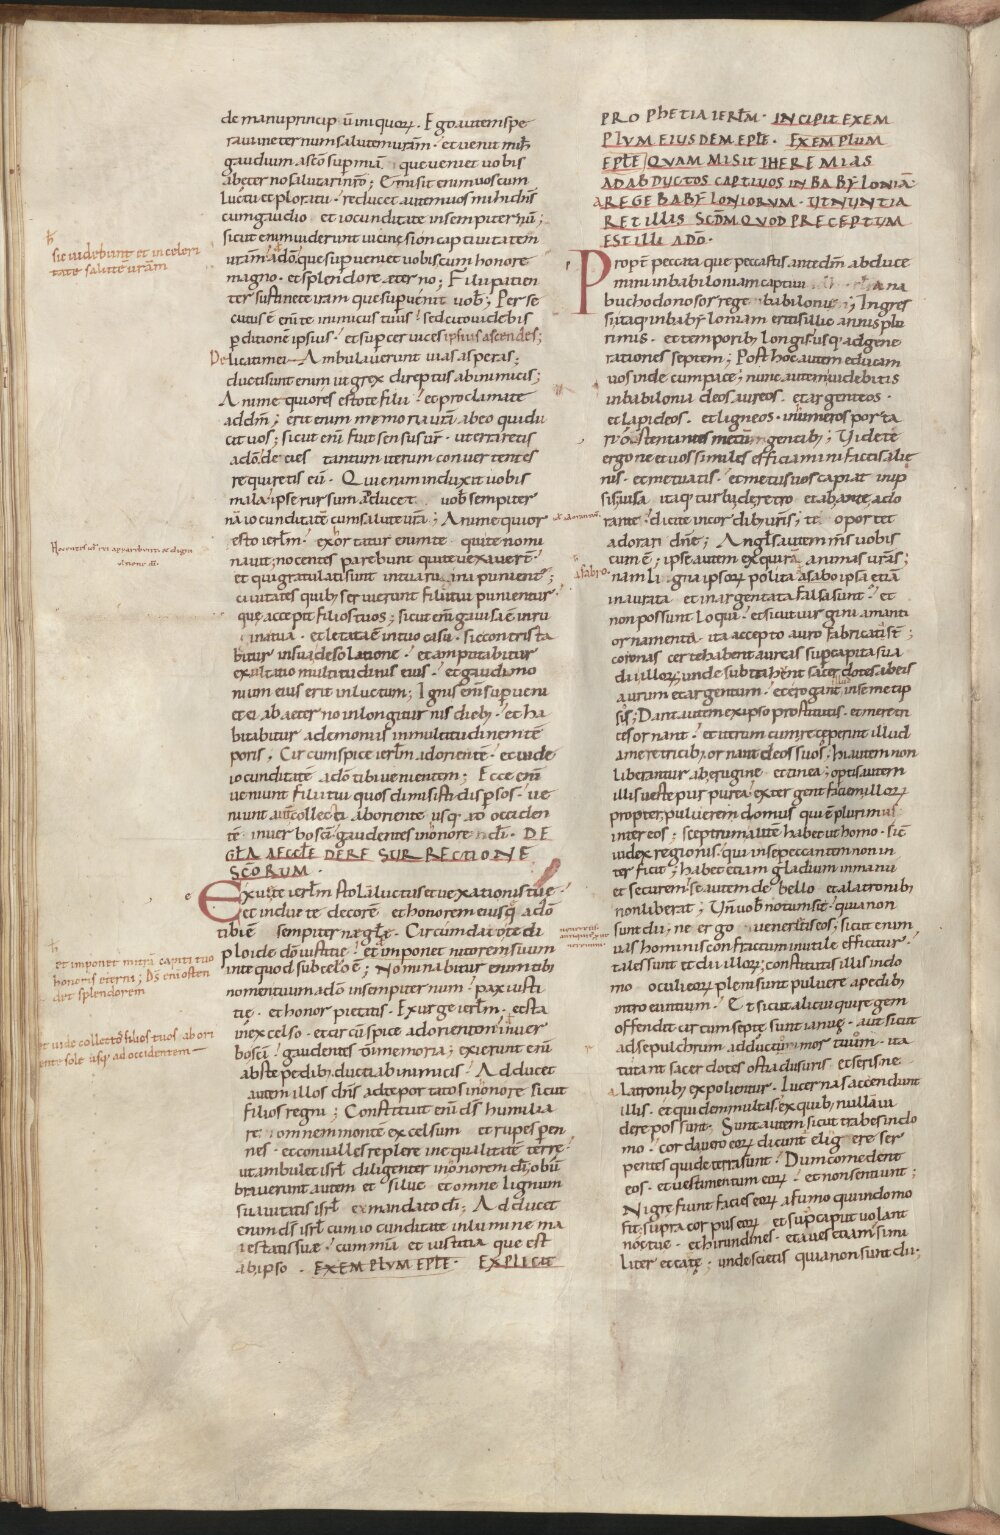 de manu princip ū iniquorꝫ. Ego autem spe
raui in eternum salutem ur̄am. et uenit mih
gaudium a sc̄o sup mīa que ueniet uobis
ab eterno salutari nr̄o; Emisi enim uos cum
luctu et ploratu. reducet autem uos mihi dn̄s
cum gaudio et iocunditate in sempiternū;
sicut enim uiderunt uicine sion captiuitatem
ur̄am a dō. que sup ueniet uobis cum honore
magno. et splendore eterno; Filii patien
ter sustinete iram que sup uenit uob; Per se
cutus ē eni te inimicus tuus. sed cito uidebis
pditionem ipsius. et sup ceruices ipsius ascendes;
Delicati mei Ambulauerunt uias asperas;
ducti sunt enim ut grex direptus ab inimicis;
Anime quiores estote filii et proclamate
ad dm̄; erit enim memoria ur̄i ab eo qui du
cit uos; sicut enī fuit sensus ur̄. ut erraretis
a dō. decies tantum iterum conuertentes
requiretis eū. Qui enim induxit uobis
mala ipse rursum adducet uob sempiter
nā iocunditatē cum salute ur̄a; Anime quior
esto ierlm̄. exortatur enim te qui te nomi
nauit; nocentes parebunt qui te uexauerū.
et qui gratulati sunt in tua ruina punientur;
ciuitates quib; seruierunt filii tui punientur.
que accepit filios tuos; sicut enī gauisa ē in ru
ina tua. et letata ē in tuo casu. sic contrista
bitur in sua desolatione. et amputabitur
exultatio multitudinis eius. et gaudimo
nium eius erit in luctum; Ignis enī sup ueni
et ei ab aeterno in longiturnis dieb;. et ha
bitabitur a demoniis in multitudinem tē
poris. Circumspice ierlm̄ ad orientē. et uide
iocunditatē a dō tibi uenientem; Ecce enī
ueniunt filii tui quos dimisisti dispsos. ue
niunt collecti ab oriente usq; ad occiden
tē in uerbo sc̄i gaudentes in honore dī. DE
GL̄A AECCL̄E DE RESURRECTIONE
SC̄ORUM.
Exue te ierlm̄ stola luctus et uexationis tue.
et indue te decorē et honorem eius q̄ a dō
tibi ē sempiterne glę. Circumda te
ploide dō iustitie. et imponet mitorem suum
in te quod sub celo ē; Nominabitur enim tibi
nomen tuum a dō in sempiternum. pax iusti
tie. et honor pietatis. Exurge ierlm̄. et sta
in excelso. et circū spice ad orientem in uer
bo sc̄i gaudentes dī memoria; exierunt enī
abs te pedib; ducti ab inimicis. Adducet
autem illos dn̄s ad te portatos in honore sicut
filios regni; Constituit enī ds̄ humilia
re omnem montē excelsum et rupes peren
nes. et conualles replere in equalitatē terre
ut ambulet isrl̄ diligenter in honorem dī; obū
brauerunt autem et silue et omne lignum
suauitatis isrl̄ ex mandato dī; Adducet
enim ds̄ isrl̄ cum iocunditate in lumine ma
iestatis sue. cum mīa et iustitia que est
ab ipso. EXEMPLUM EPLE. EXPLICIT
sic uidebunt et in celeri
tate salutē uram
Nocentes
et imponet mitrā capiti tuo
honoris eterni; Ds̄ enī osten
det splendorem
et uide collectos filios tuos ab ori
ente sole usq; ad occidentem
PROPHETIA IERLM̄. INCIPIT EXEM
PLUM EIUSDEM EPLE. EXEMPLUM
EPLE QUAM MISIT IHEREMIAS
AD ABDUCTOS CAPTIUOS IN BABYLONIĀ
A REGE BABYLONIORUM. UT NUNTIA
RET ILLIS SC̄DM QUOD PRECEPTUM
EST ILLI A DŌ.
Propt̄ peccata que peccastis ante dm̄ abduce
mini in babiloniam captiui na
buchodonosor rege babilonie; Ingres
si itaq; in babyloniam eritis illic annis plu
rimis. et temporib; longis usq; ad gene
rationes septem; Post hoc autem educam
uos inde cum pace; nunc autem uidebitis
in babilonia deos aureos. et argenteos.
et lapideos. et ligneos. in umeros porta
ri ostentantes metum gentib; Uidete
ergo ne et uos similes efficiamini factis alie
nis. et metuatis. et metus uos capiat in ip
sis; uisa itaq; turba de retro et ab ante ado
rante. dicite in cordib; uris; te oportet
adorari dn̄e; Angl̄s autem ms̄ uobis
cum ē; ipse autem exquirā animas ur̄as;
nam lingua ipsorꝫ polita a fabo ipsa etiā
inaurata et inargentata falsa sunt. et
non possunt loqui. et sicut uirgini amanti
ornamenta. ita accepto auro fabricati s̄t;
coronas certe habent aureas sup capita sua
dii illorꝫ; unde subtrahunt sacerdotes ab eis
aurum et argentum. et erogant in semetip
sis; Dant autem ex ipso prostitutis. et meretri
ces ornant. et iterum cum receperint illud
a meretricib; ornant deos suos; hi autem non
liberantur ab erugine et tinea; optis autem
illis ueste purpurea. extergent faciem illorꝫ
propter puluerem domus qui ē plurimus
inter eos; sceptrum autē habet ut homo. sic
iudex regionis. qui in se peccantem non in
terficit; habet etiam gladium in manu
et securem. se autem de bello et a latronib;
non liberat; Un̄ uob notum sit. quia non
sunt dii; ne ergo ueneritis eos; sicut enim
uas hominis confractum inutile efficitur.
tales sunt et dii illorꝫ; constitutis illis in do
mo oculi eorꝫ pleni sunt puluere a pedib;
introeuntium. Et sicut alicui qui regem
offendit circum septe sunt ianue. aut sicut
ad sepulchrum adductum mortuum. ita
tutant sacerdotes ostia clusuris et seris. ne
a latronib; expolientur. Lucernas accendunt
illis. et quidem multas. ex quib; nulla ui
dere possunt. Sunt autem sicut trabes in do
mo. corda uero eorꝫ dicunt eligere ser
pentes qui de terra sunt. Dum comedent
eos. et uestimentum eorꝫ. et non sentiunt;
Nigre fiunt facies eorꝫ a fumo qui in domo
fit; supra corpus eorꝫ et sup caput uolant
noctue. et hirundines. et aues etiam simi
liter et catę. unde scietis quia non sunt dii;
a fabro